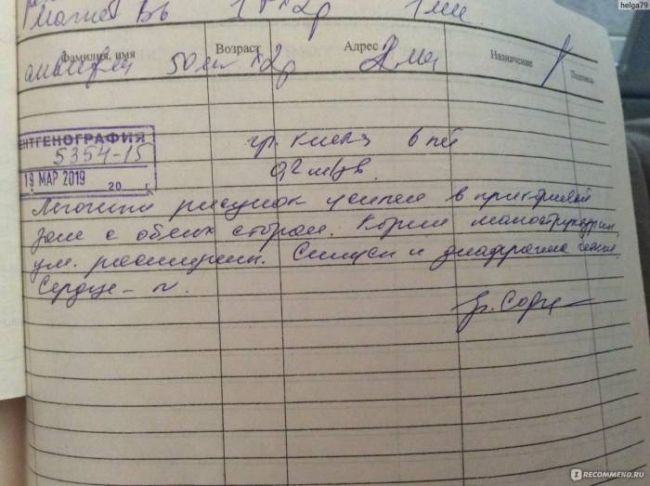 helga79
Магне В6 1т х 2р 1 мес
Фамилия, имя Возраст Адрес Назначение Подпись
50 мл х 2р
РЕНТГЕНОГРАФИЯ
5354-15
19 МАР 2019 20 г.
гр. клетки в пп
0,2 мЗв
Легочный рисунок усилен в прикорневой
зоне с обеих сторон. Корни малоструктурны,
ум. расширены. Синусы и диафрагма
Сердце - N.
Вр.
RECOMMEND.RU